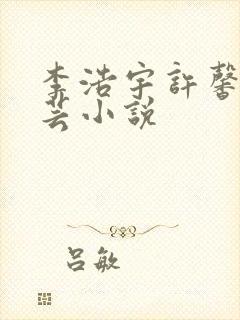 李浩宇許馨
芸小說
呂敏